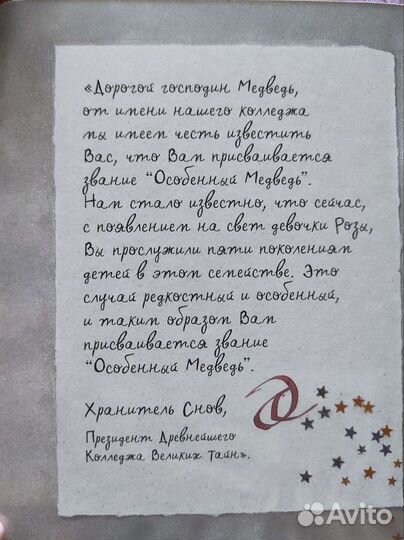 «Дорогой господин Медведь,
от имени нашего колледжа
мы имеем честь известить
Вас, что Вам присваивается
звание “Особенный Медведь”.
Нам стало известно, что сейчас,
с появлением на свет девочки Розы,
Вы прослужили пяти поколениям
детей в этом семействе. Это
случай редкостный и особенный,
и таким образом Вам
присваивается звание
“Особенный Медведь”.
Хранитель Снов,
Президент Древнейшего
Колледжа Великих Тайн».
Avito